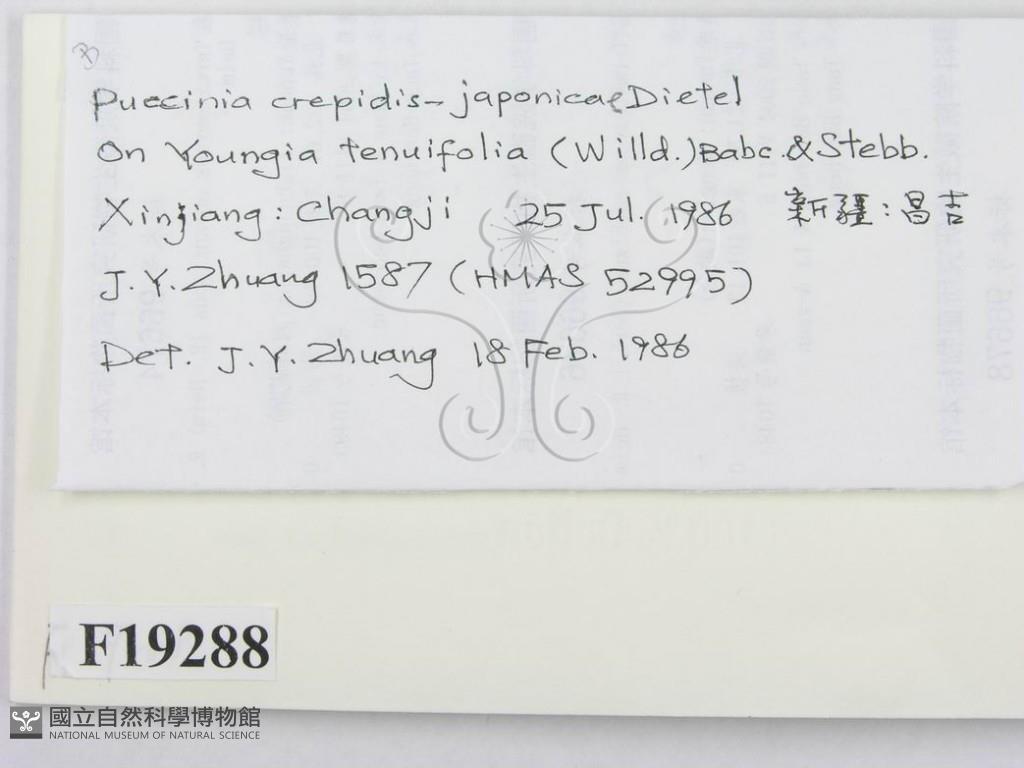 Puccinia crepidis-japonicae Dietel
On Youngia tenuifolia (Willd.) Babc. & Stebb.
Xinjiang: Changji 25 Jul. 1986 新疆:昌吉
J.Y. Zhuang 1587 (HMAS 52995)
Det. J.Y. Zhuang 18 Feb. 1986
F19288
國立自然科學博物館
NATIONAL MUSEUM OF NATURAL SCIENCE